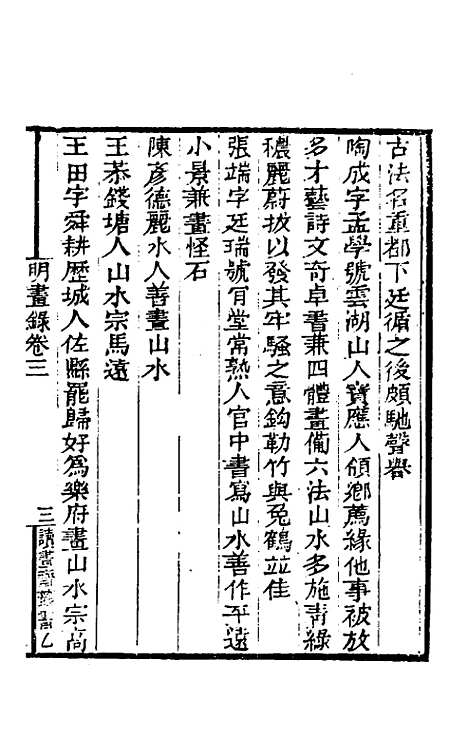 古法名重都下廷循之後頗馳聲譽
陶成字孟學號雲湖山人寶應人領鄉薦緣他事被放
多才藝詩文奇卓書兼四體畫備六法山水多施青綠
穠麗蔚拔以發其牢騷之意鈎勒竹與兔鶴並佳
張端字廷瑞號可堂常熟人官中書寫山水善作平遠
小景兼畫怪石
陳彥德麗水人善畫山水
王恭錢塘人山水宗馬遠
王田字舜耕歷城人佐縣罷歸好爲樂府畫山水宗高
明畫錄卷三
三
讀畫齋叢書乙